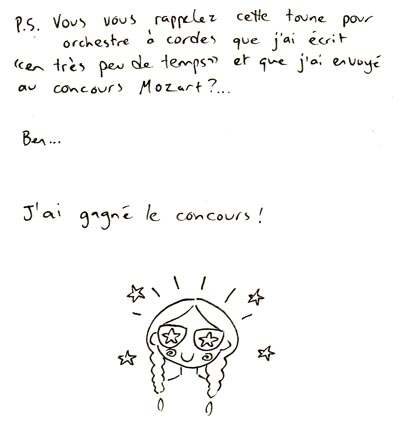 P.S. Vous vous rappelez cette toune pour
orchestre à cordes que j'ai écrit
«en très peu de temps» et que j'ai envoyé
au concours Mozart?...
Ben...
J'ai gagné le concours!